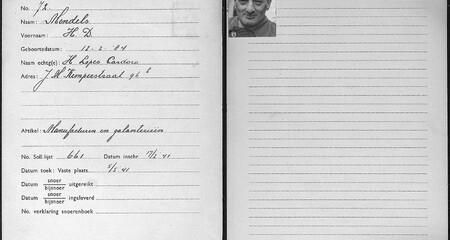 No. 72
Naam: Mendels
Voornaam: H. D.
Geboortedatum: 12-2-84
Naam echtg(e): H. Lopes Cardozo
Adres: J. M. Kemperstraat 96
Artikel: Manufacturen en galanterieën
No. Soll. lijst 661 Datum inschr. 17/2 41
Datum toek: Vaste plaats 5/5 41
Datum snoer bijsnoer uitgereikt
Datum snoer bijsnoer ingeleverd
No. verklaring snoerenboek